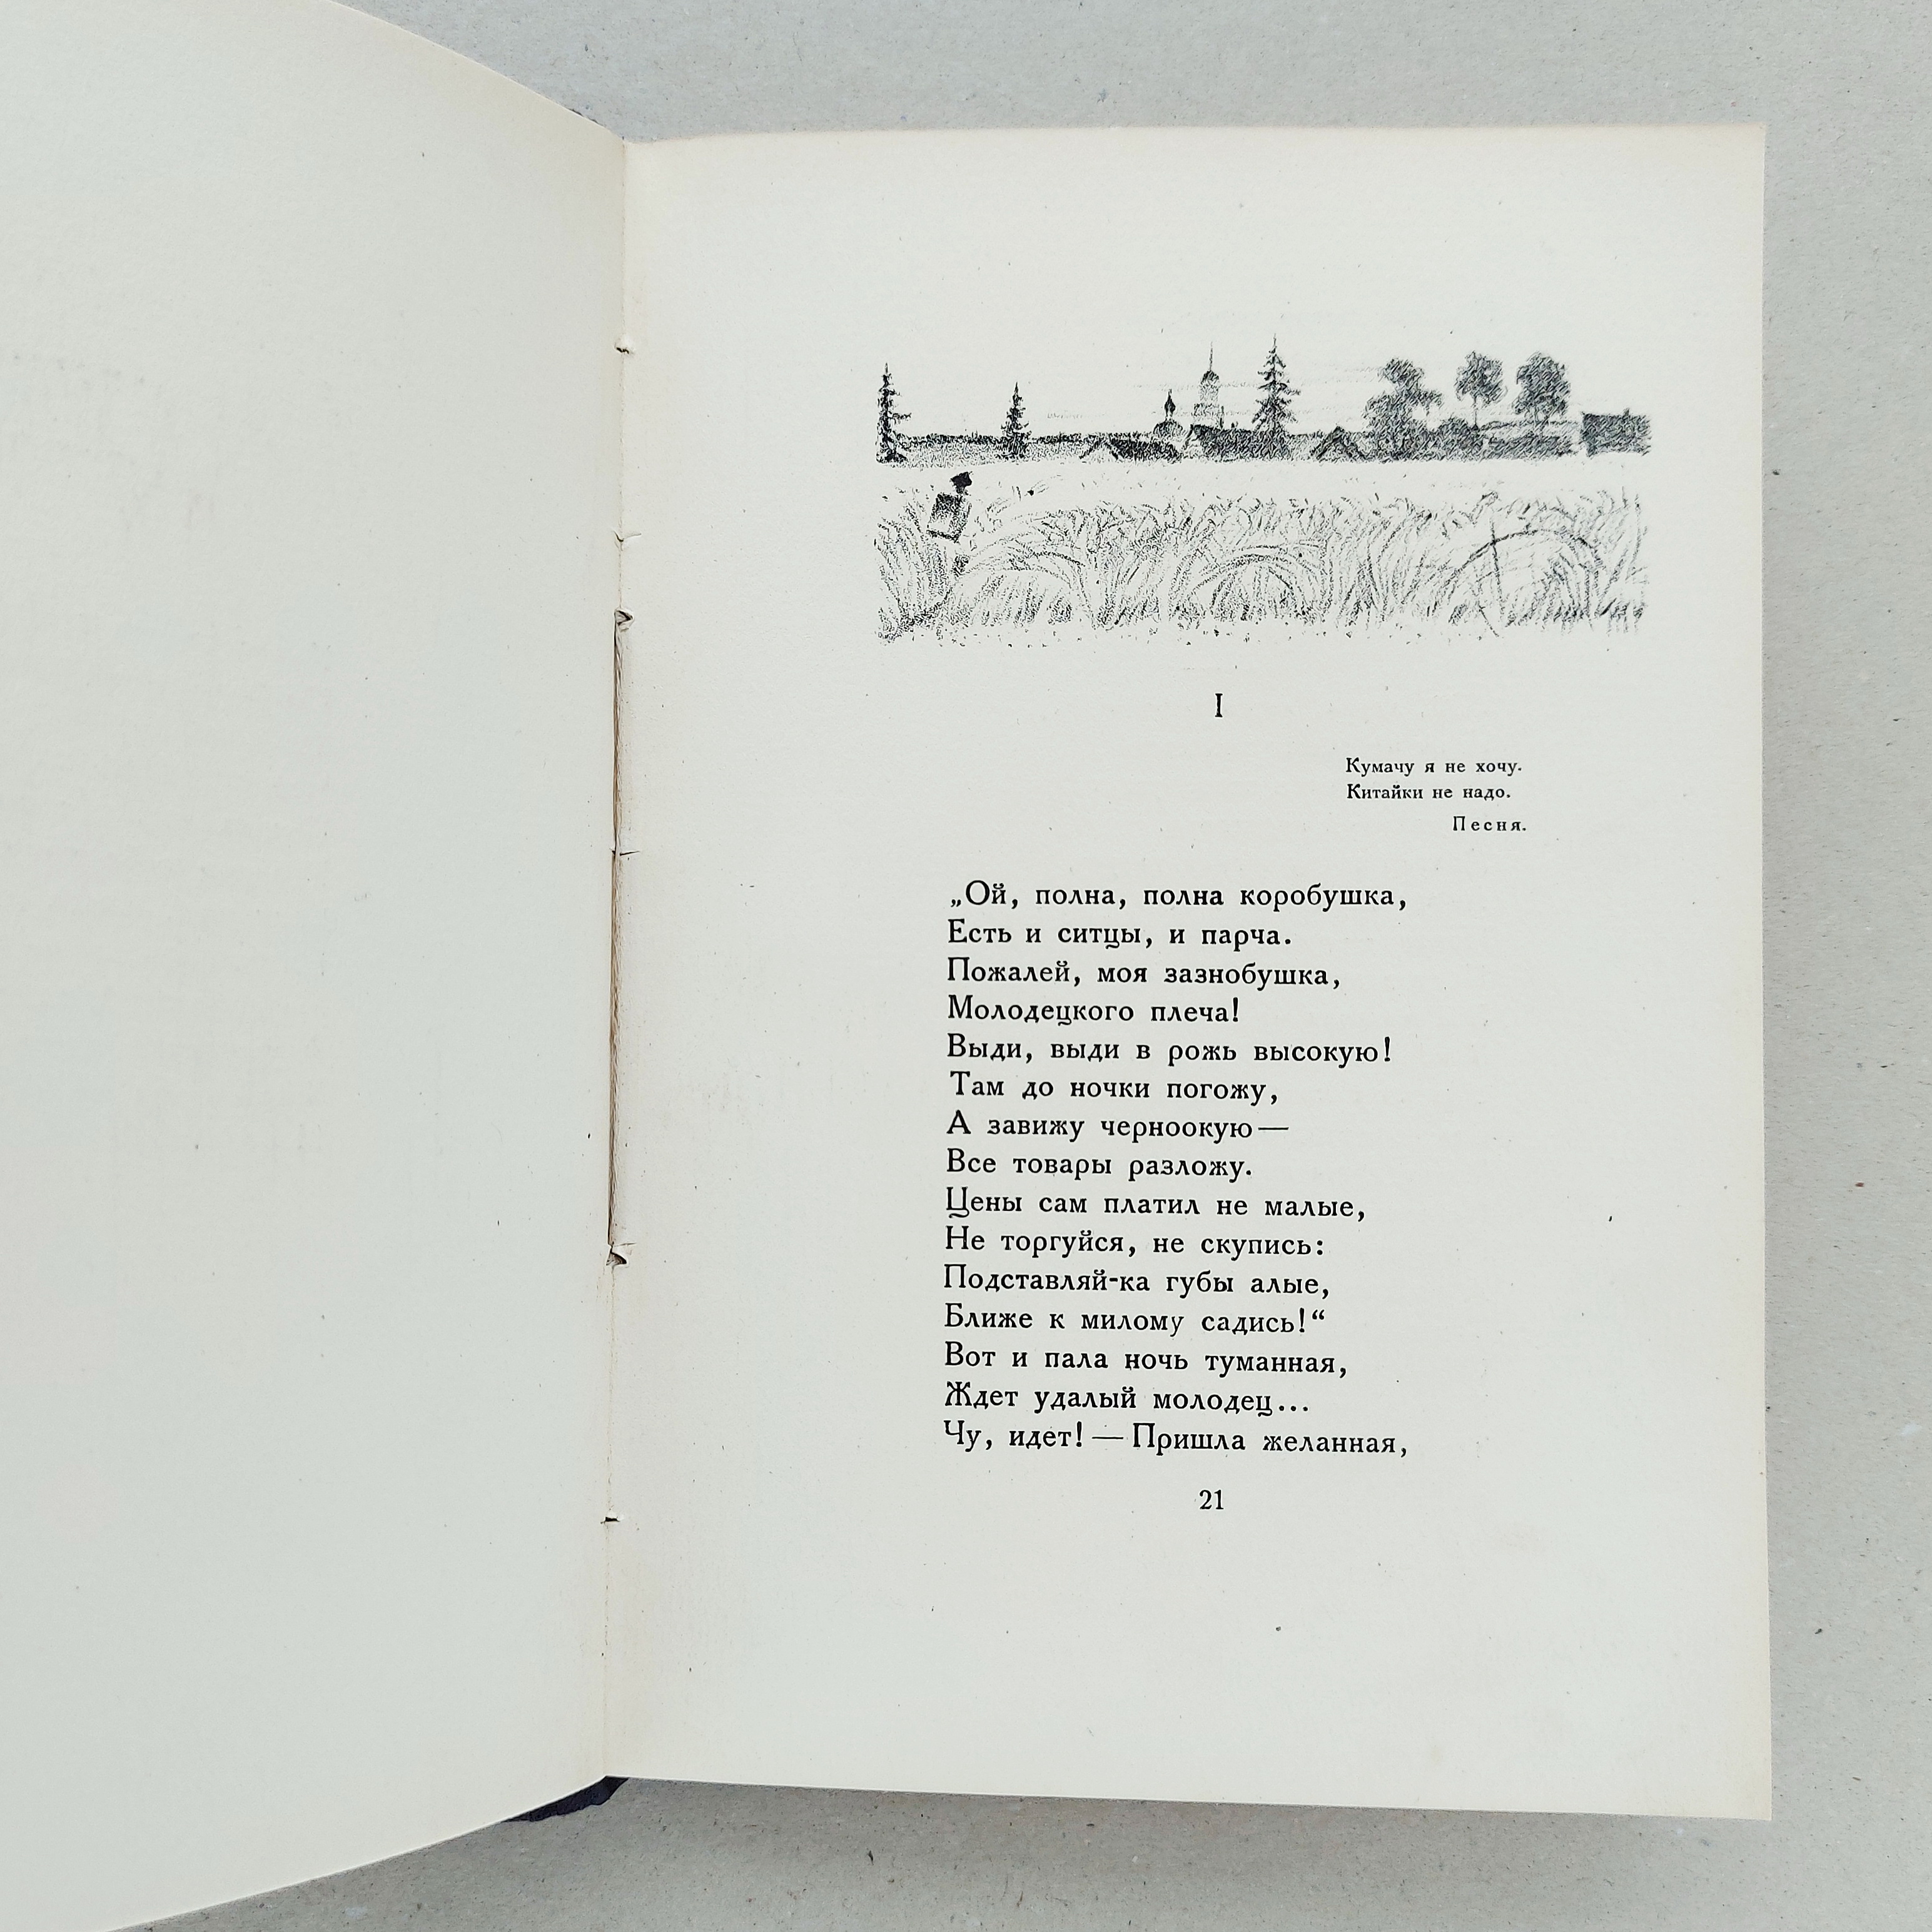 I
Кумачу я не хочу.
Китайки не надо.
Песня.
„Ой, полна, полна коробушка,
Есть и ситцы, и парча.
Пожалей, моя зазнобушка,
Молодецкого плеча!
Выди, выди в рожь высокую!
Там до ночки погожу,
А завижу черноокую—
Все товары разложу.
Цены сам платил не малые,
Не торгуйся, не скупись:
Подставляй-ка губы алые,
Ближе к милому садись!“
Вот и пала ночь туманная,
Ждет удалый молодец...
Чу, идет! — Пришла желанная,
21